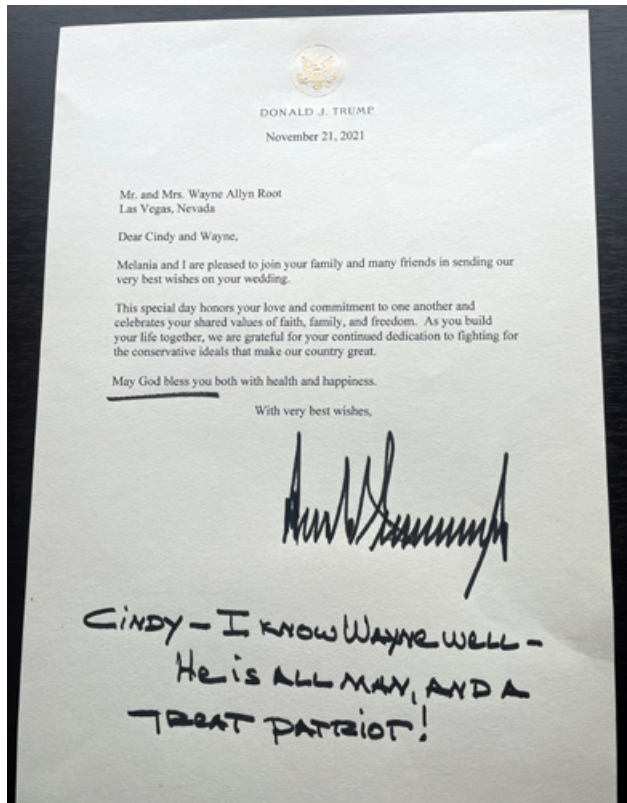 DONALD J. TRUMP
November 21, 2021
Mr. and Mrs. Wayne Allyn Root
Las Vegas, Nevada
Dear Cindy and Wayne,
Melania and I are pleased to join your family and many friends in sending our
very best wishes on your wedding.
This special day honors your love and commitment to one another and
celebrates your shared values of faith, family, and freedom. As you build
your life together, we are grateful for your continued dedication to fighting for
the conservative ideals that make our country great.
May God bless you both with health and happiness.
With very best wishes,
CINDY - I KNOW WAYNE WELL -
He is ALL MAN, AND A
GREAT PATRIOT!